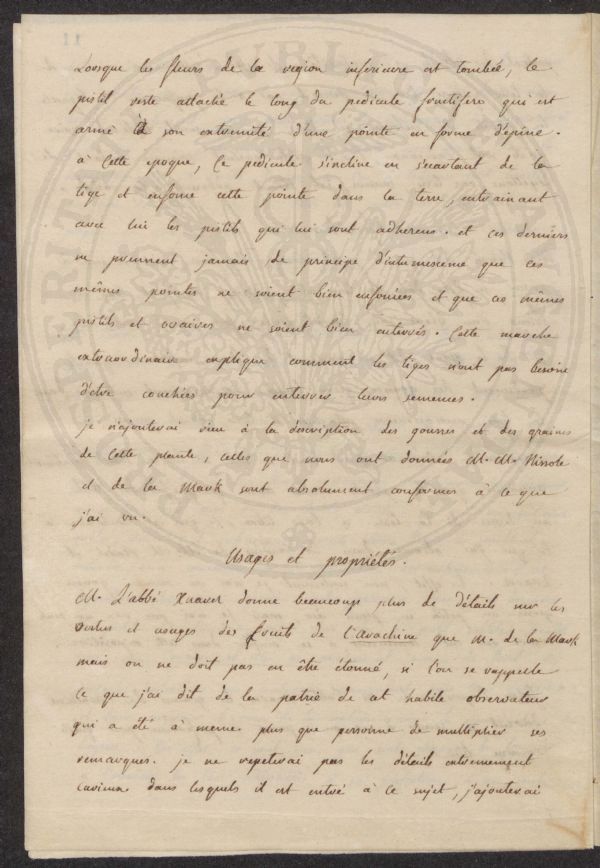 Lorsque les fleurs de la region inferieure est tombée, le
pistil reste attachée le long du pedicule fructifere qui est
armé à son extremité d'une pointe en forme d'épine.
à cette epoque, ce pedicule s'incline en s'ecartant de la
tige et enfonce cette pointe dans la terre, entrainant
avec lui les pistils qui lui sont adherens. et ces derniers
ne prennent jamais de principe d'intumescence que ces
mêmes pointes ne soient bien enfoncées et que ces mêmes
pistils et ovaires ne soient bien enterrés. Cette marche
extraordinaire explique comment les tiges n'ont pas besoin
d'etre couchées pour enterrer leurs semences.
je n'ajouterai rien à la description des gousses et des graines
de cette plante, celles que nous ont données M. M. Nissole
et de la Mark sont absolument conformes à ce que
j'ai vu.
Usages et propriétés.
M. L'abbé donne beaucoup plus de détails sur les
vertus et usages des fruits de l'arachine que M. de la Mark
mais on ne doit pas en être étonné, si l'on se rappelle
ce que j'ai dit de la patrie de cet habile observateur
qui a été à meme plus que personne de multiplier ses
remarques. je ne repeterai pas les détails extremement
curieux dans lesquels il est entré à ce sujet, j'ajouterai